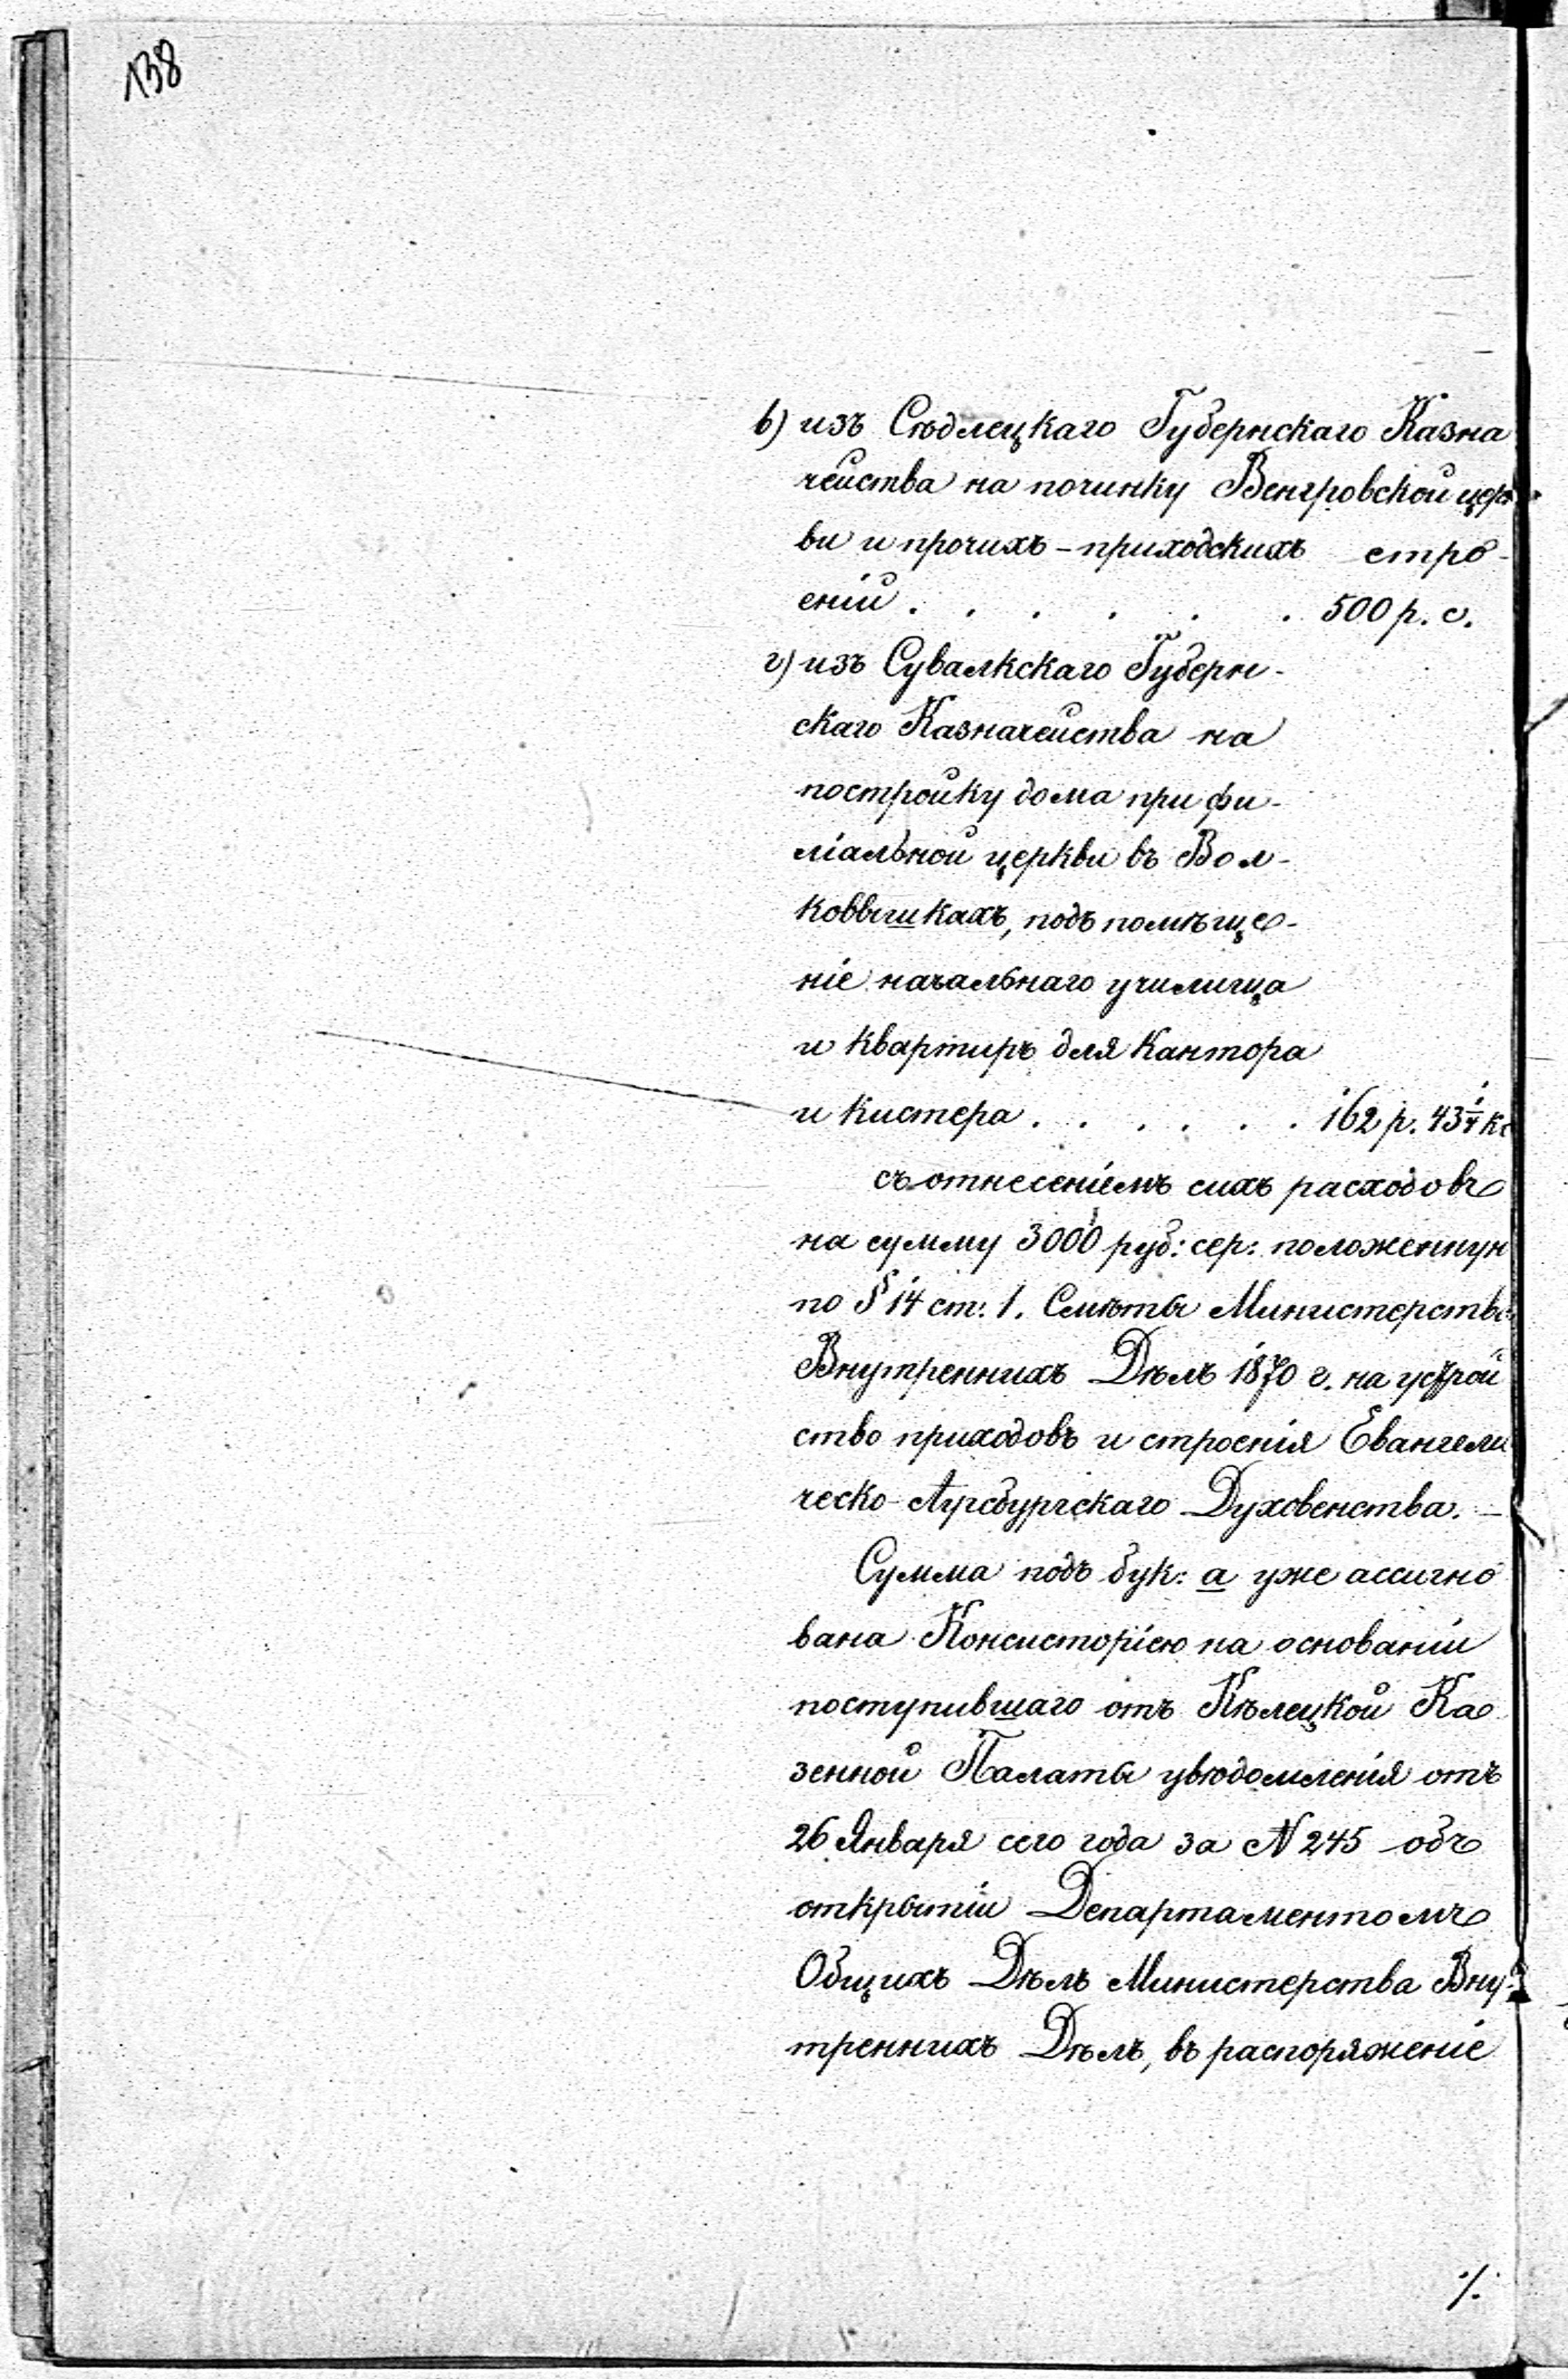 138
в) изъ Сѣдлецкаго Губернскаго Казна
чейства на починку Венгровской церк
ви и прочихъ - приходскихъ стро-
еній . . . . . . 500 р. с.
г) изъ Сувалкскаго Губерн-
скаго Казначейства на
постройку дома при фи-
ліальной церкви въ Вол-
ковышкахъ, подъ помѣще-
ніе начальнаго училища
и квартиръ для Кантора
и Кистера . . . . . . 162 р. 43 1/4 к
съ отнесеніемъ сихъ расходовъ
на сумму 3000 руб: сер: положенную
по § 14 ст. 1. Смѣты Министерства
Внутреннихъ Дѣлъ 1870 г. на устрой
ство приходовъ и строенія Евангели
ческо-Аугсбургскаго Духовенства. —
Сумма подъ бук: а уже ассигно
вана Консисторіею на основаніи
поступившаго отъ Кѣлецкой Ка
зенной Палаты увѣдомленія отъ
26 Января сего года за N 245 объ
открытіи Департаментомъ
Общихъ Дѣлъ Министерства Вну-
треннихъ Дѣлъ, въ распоряженіе
./.